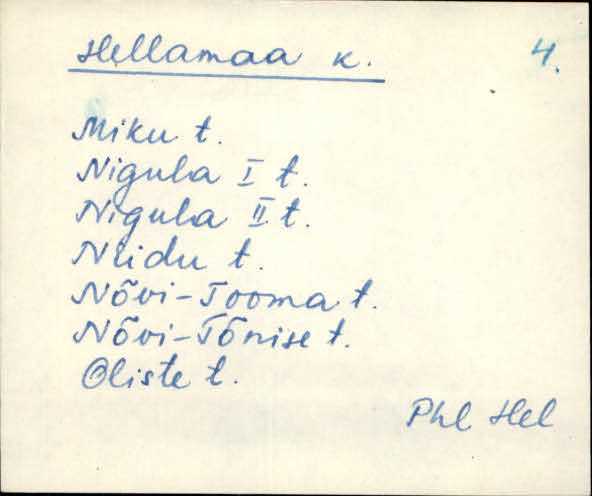 Hellamaa k. 4.
Miku t.
Nigula I t.
Nigula II t.
Nõvi-Tooma t.
Nõvi-Tõnise t.
Oliste t.
Phl Hel